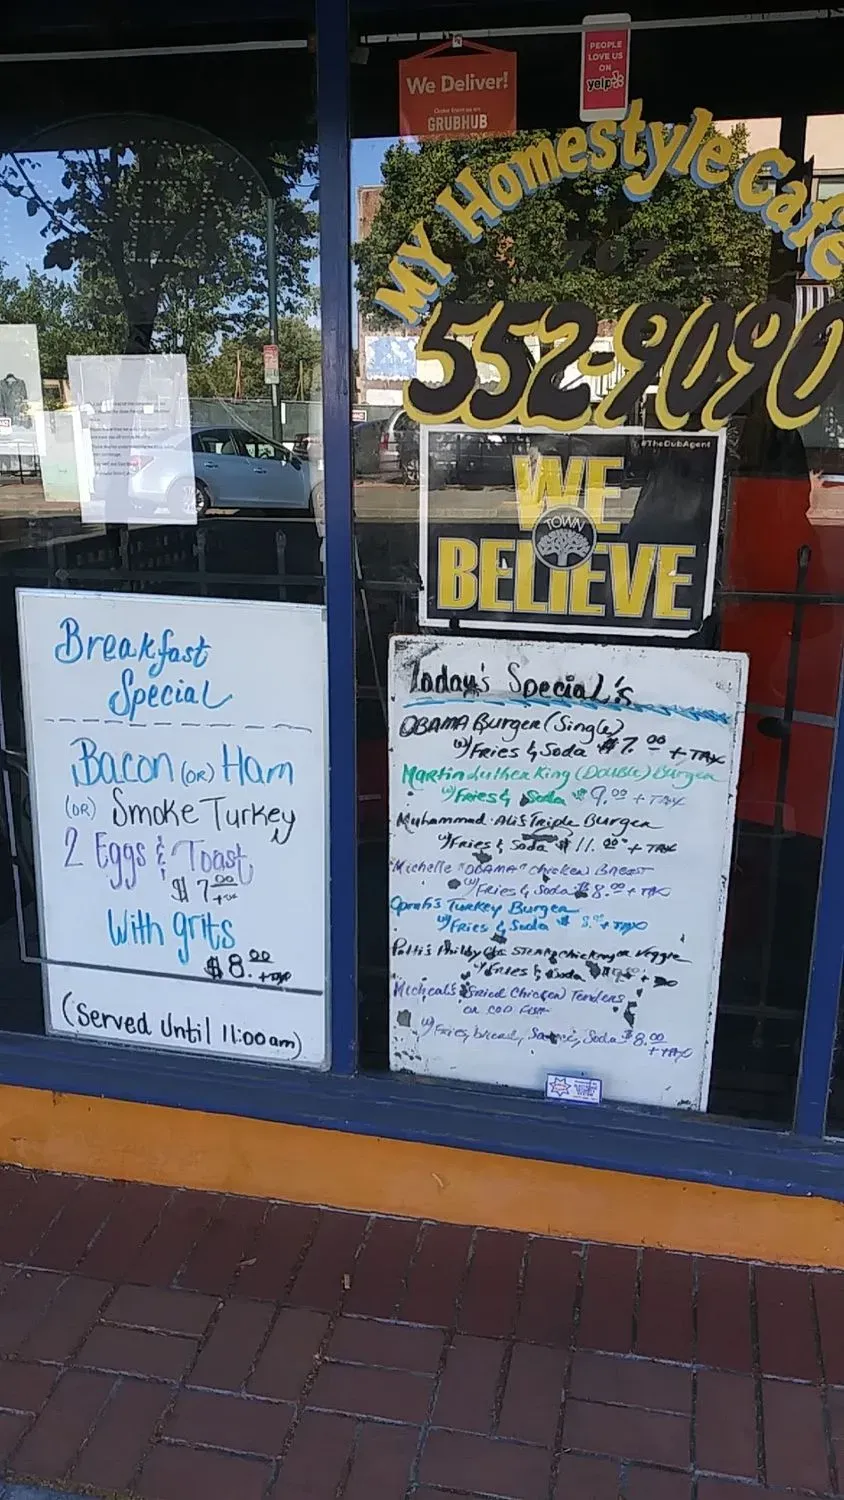 We Deliver!
Order from us on
GRUBHUB
PEOPLE
LOVE US
ON
yelp
MY Homestyle Cafe
707
552-9090
#TheDubAgent
WE
TOWN
BELIEVE
Breakfast
Special
Bacon (OR) Ham
(OR) Smoke Turkey
2 Eggs & Toast
$7.00
+TAX
With grits
$8.00 +TAX
(Served Until 11:00am)
Today's Special's
OBAMA Burger (Single)
w/Fries & Soda $7.00 + TAX
Martin Luther King (Double) Burger
w/Fries & Soda $9.00 + TAX
Muhammad Ali's Triple Burger
w/Fries & Soda $11.00 + TAX
Michelle "OBAMA" Chicken Breast
w/Fries & Soda $8.00 + TAX
Oprah's Turkey Burger
w/Fries & Soda $ + TAX
Patti's Philly Steak chicken or Veggie
w/Fries & Soda
Micheal's Fried Chicken Tenders
or COD Fish
w/Fries, bread, Soda $8.00
++TAX